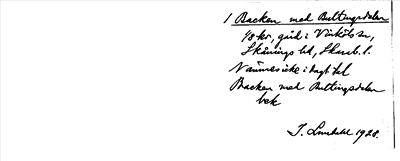 1 Backen med Buttingsdalen
48 kr, gård i Vinköl sn,
Skånings hd, Skarab. l.
Nämnes icke i dagl. tal
Backen med Buttingsdalen
bek
J. Lundahl 1928.